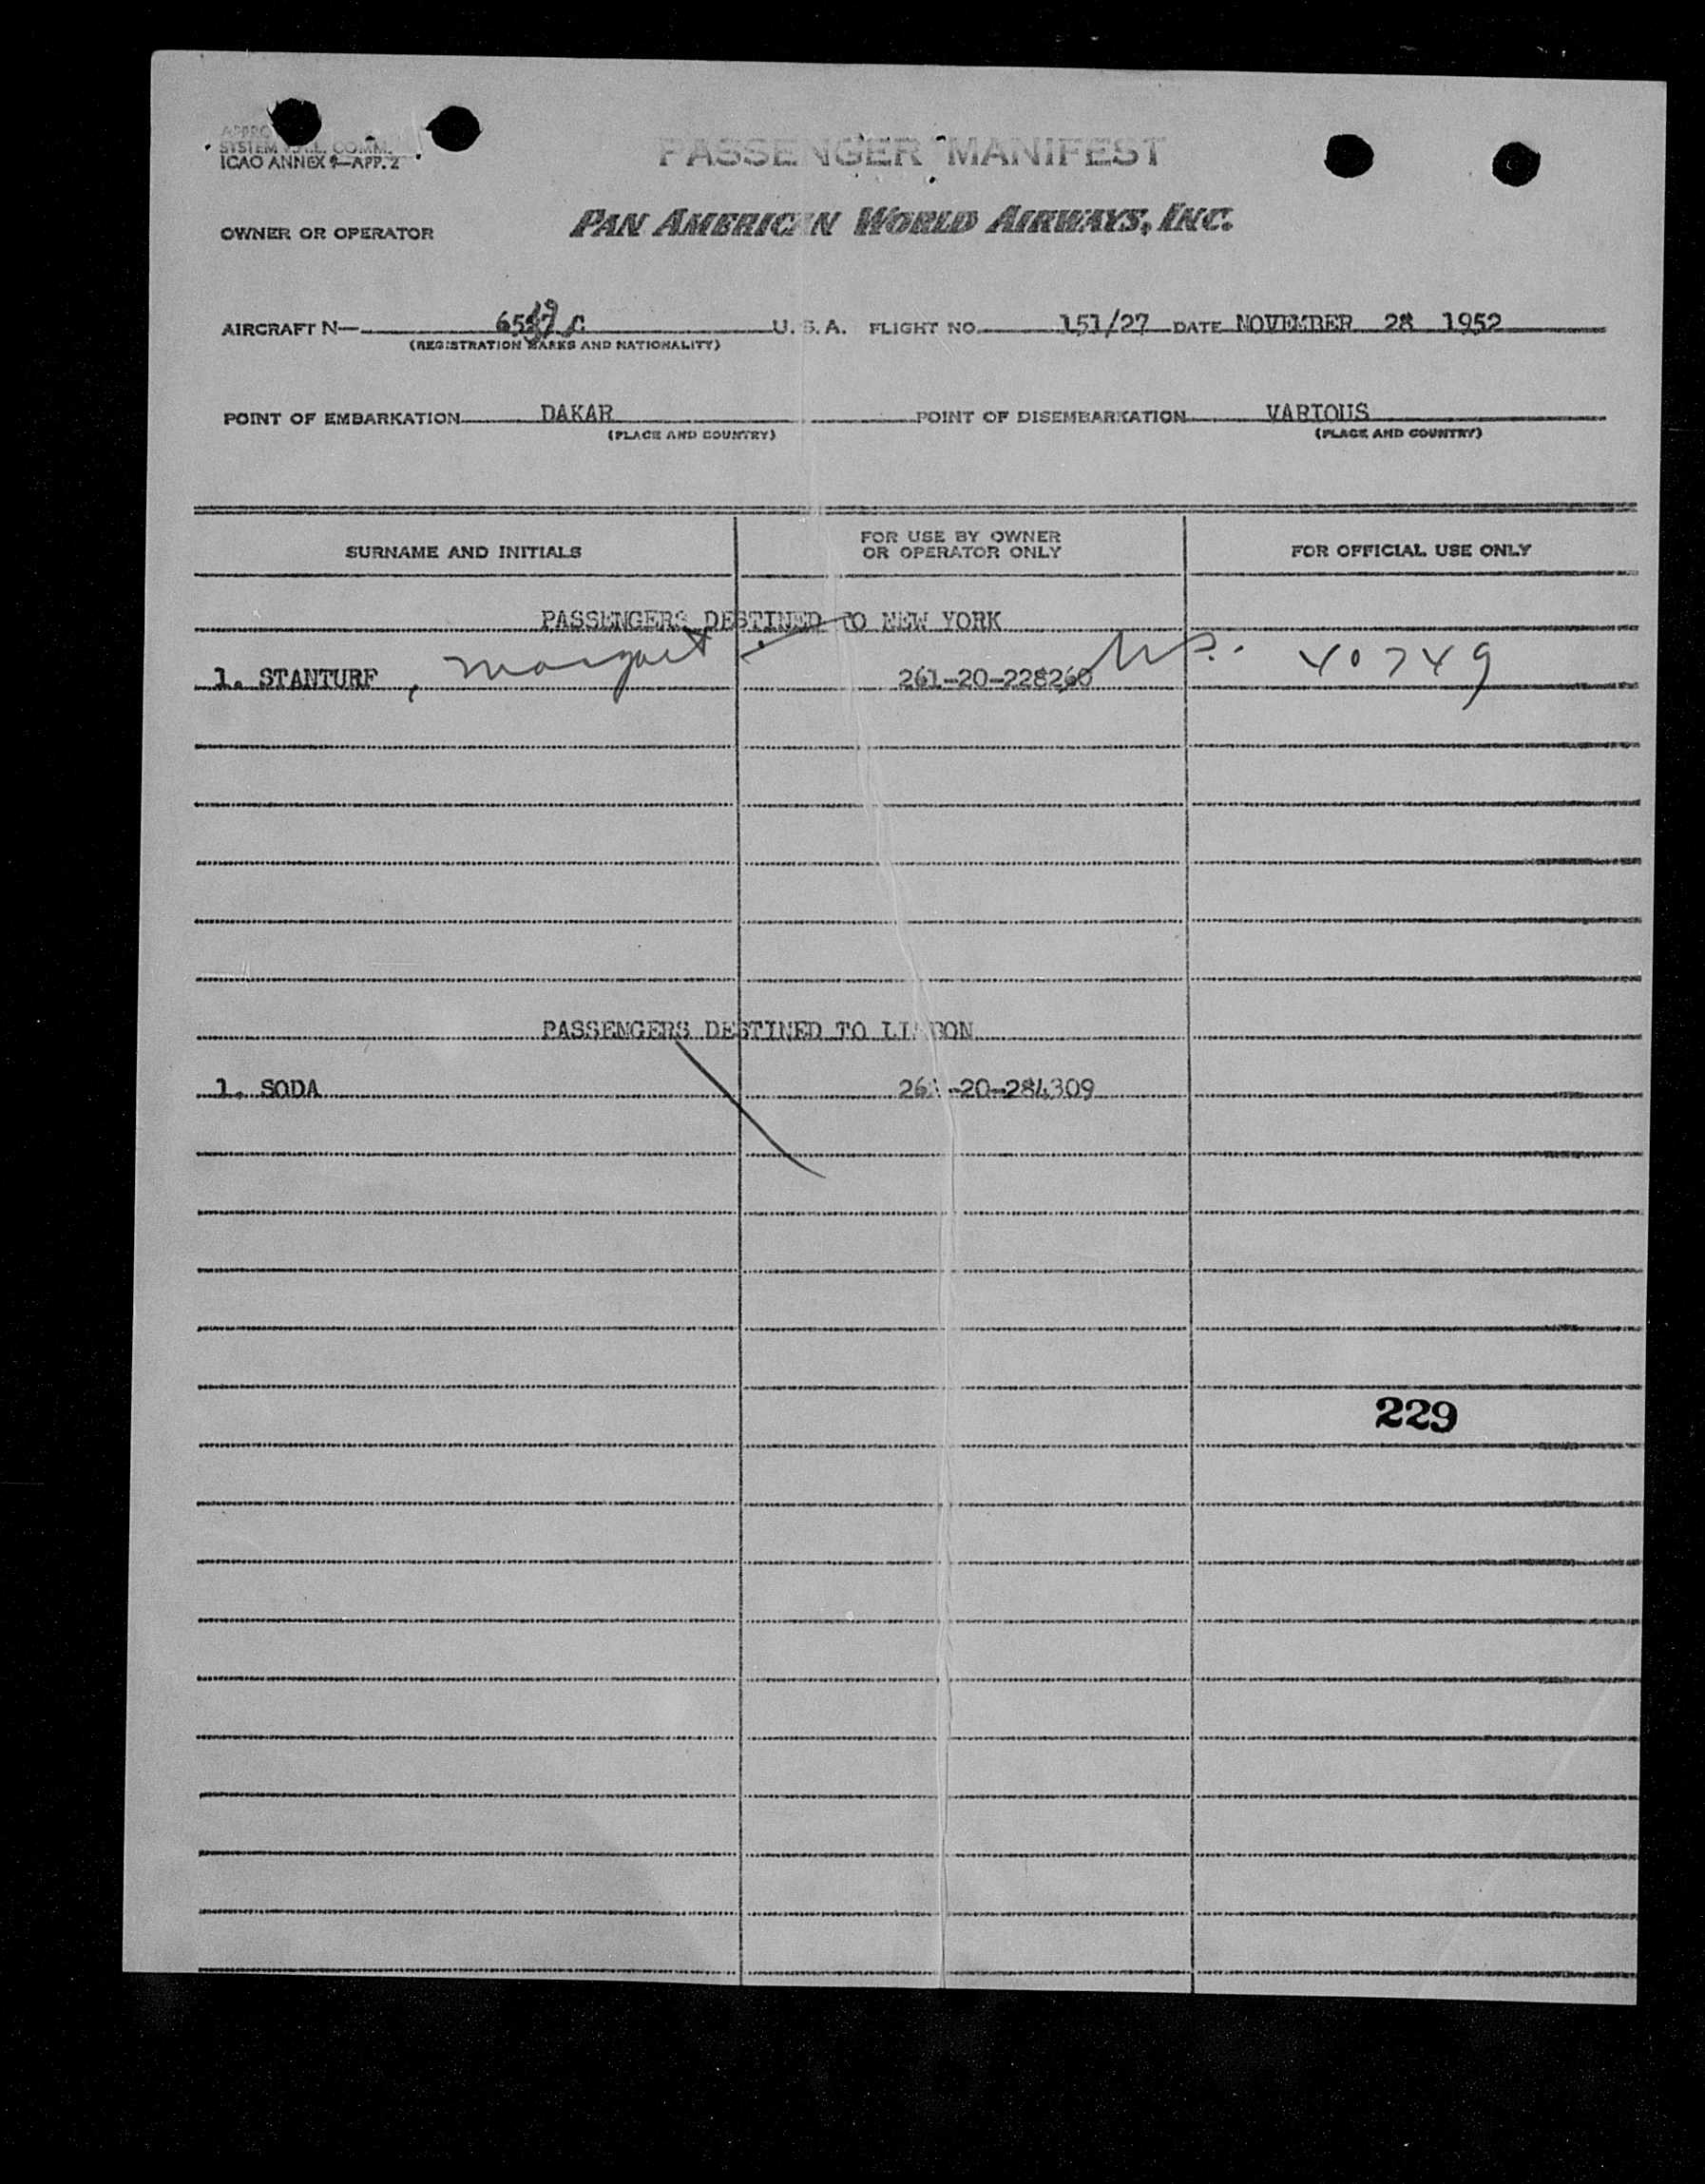 PASSENGER MANIFEST
SYSTEM COMM.
ICAO ANNEX 9—APP. 2
OWNER OR OPERATOR PAN AMERICAN WORLD AIRWAYS, INC.
AIRCRAFT N— C U. S. A. FLIGHT NO. 151/27 DATE NOVEMBER 28 1952
(REGISTRATION MARKS AND NATIONALITY)
POINT OF EMBARKATION DAKAR POINT OF DISEMBARKATION VARIOUS
(PLACE AND COUNTRY) (PLACE AND COUNTRY)
SURNAME AND INITIALS FOR USE BY OWNER OR OPERATOR ONLY FOR OFFICIAL USE ONLY
PASSENGERS DESTINED TO NEW YORK
1. STANTURF, Margaret 261-20-228260 40749
PASSENGERS DESTINED TO LISBON
1. SODA 261-20-284309
229